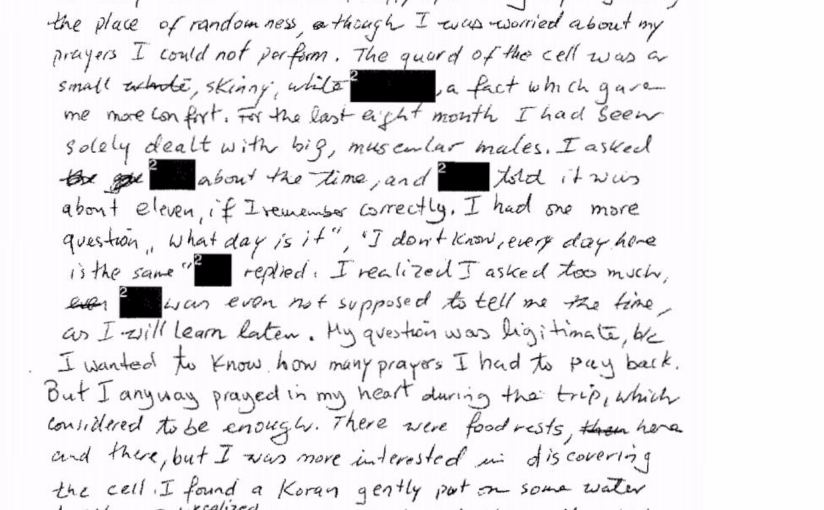 the place of randomness, although I was worried about my
prayers I could not perform. The guard of the cell was a
small white, skinny, white 2 , a fact which gave
me more confirt. For the last eight month I had been
solely dealt with big, muscular males. I asked
the 2 about the time, and 2 told it was
about eleven, if I remember correctly. I had one more
question, "What day is it", "I don't know, every day here
is the same" 2 replied. I realized I asked too much,
even 2 was even not supposed to tell me the time,
as I will learn later. My question was ligitimate, b/c
I wanted to know how many prayers I had to pay back.
But I anyway prayed in my heart during the trip, which
considered to be enough. There were food rests, then here
and there, but I was more interested in discovering
the cell. I found a Koran gently put on some water
realized